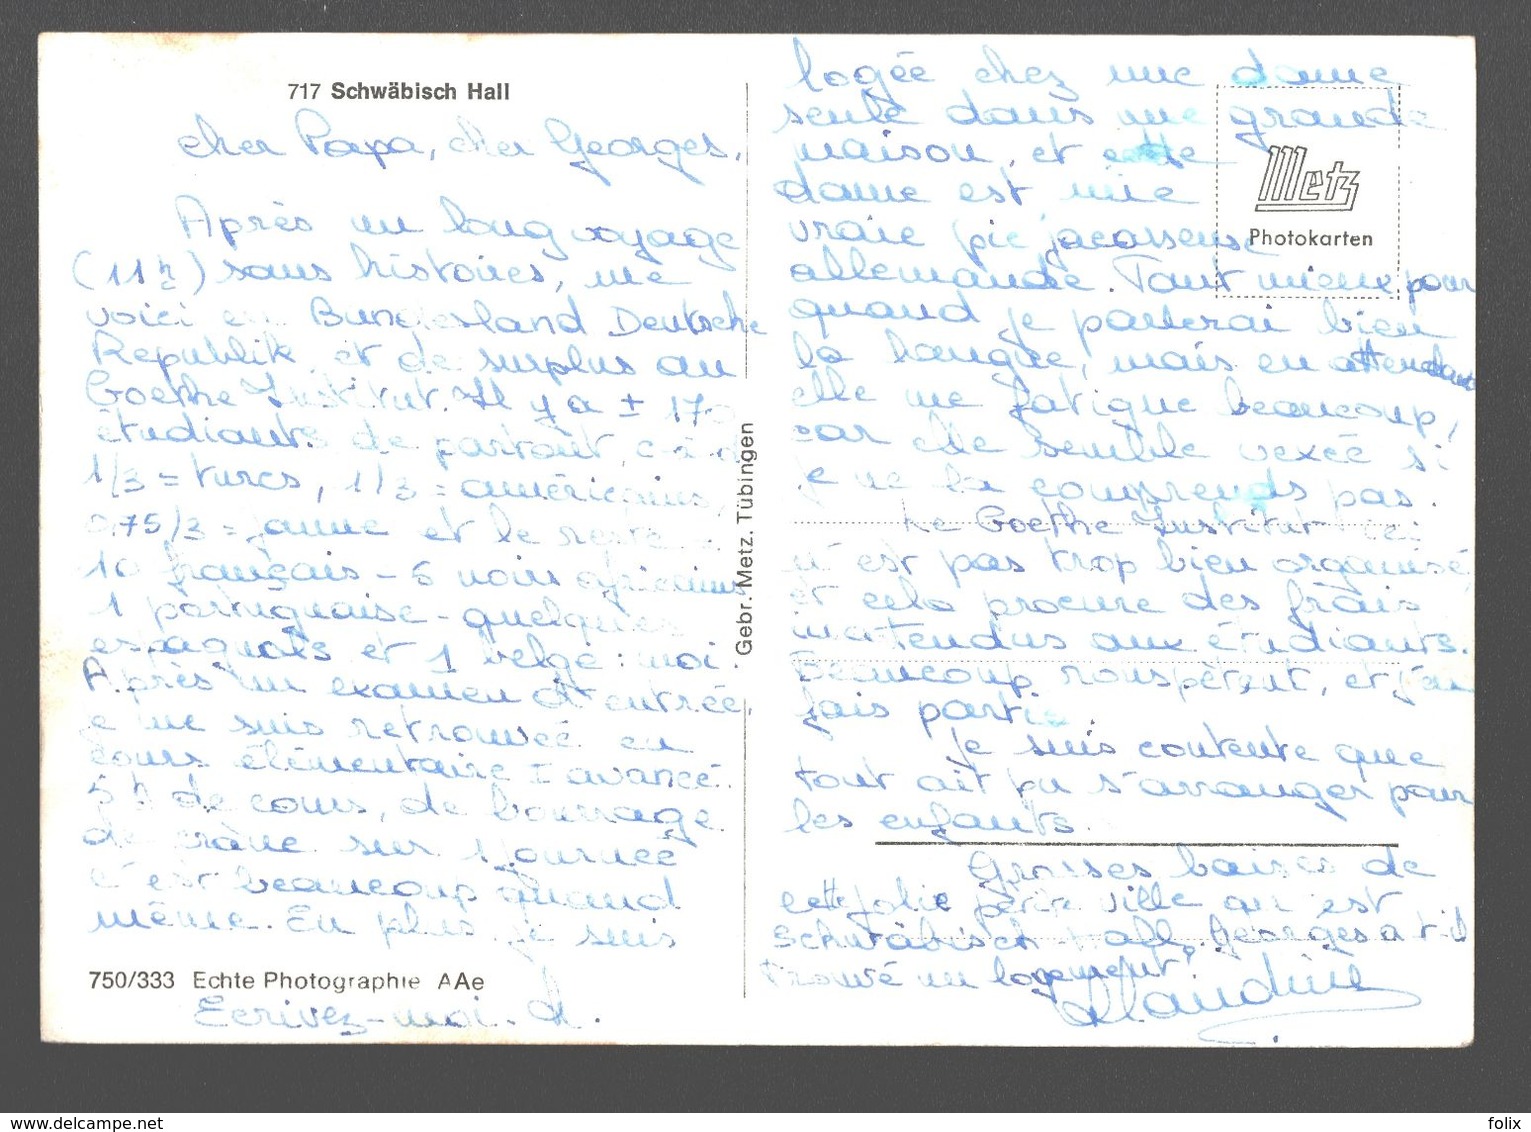 717 Schwäbisch Hall
cher Papa, cher Georges,
Après un long voyage
(11h) sans histoires, me
voici en Bundesland Deutsche
Republik et de surplus au
Goethe Institut. Il y a ± 170
étudiants de partout, c-à-d
1/3 = turcs, 1/3 = américains,
0,75/3 = jaune et le reste =
10 français - 5 noirs africains
1 portugaise - quelques
espagnols et 1 belge : moi.
Après un examen d'entrée,
je me suis retrouvée en
cours élémentaire I avancé.
5h de cours, de bourrage
de crâne sur 1 journée
c'est beaucoup quand
même. En plus, je suis
750/333 Echte Photographie AAe
Ecrivez-moi. Cl.
Gebr. Metz. Tübingen
logée chez une dame
seule dans une grande
maison, et cette
dame est une
vraie pie jacasseuse
allemande. Tant mieux pour
quand je parlerai bien
la langue, mais en attendant
elle me fatigue beaucoup,
car elle semble vexée si
je ne la comprends pas.
Le Goethe Institut ici
n'est pas trop bien organisé
et cela procure des frais
inattendus aux étudiants.
Beaucoup rouspètent, et j'en
fais partie.
Je suis contente que
tout ait pu s'arranger pour
les enfants.
Grosses baises de
cette jolie petite ville qu'est
Schwäbisch Hall. Georges a t-il
trouvé un logement?
Claudine
Metz
Photokarten
www.delcampe.net
folix